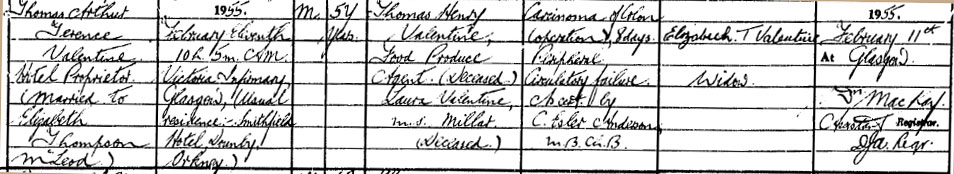 Thomas Arthur
Terence
Valentine
Hotel Proprietor
(Married to
Elizabeth
Thompson
McLeod)
1955.
February Eleventh
10h. 5m. A.M.
Victoria Infirmary
Glasgow, (Usual
residence :- Smithfield
Hotel, Dounby,
Orkney.)
M.
54
yrs.
Thomas Henry
Valentine,
Food Produce
Agent. (Deceased.)
Laura Valentine,
m.s. Millar
(Deceased.)
Carcinoma of Colon
(operation), 8 days.
Peripheral
Circulatory failure.
As cert. by
C. Esler Anderson,
M.B. Ch.B.
Elizabeth T Valentine
Widow.
1955.
February 11th
At Glasgow.
MacKay.
Registrar.